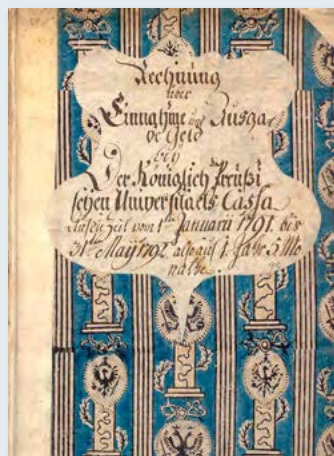 Rechnung
über
Einnahme und Ausga=
be Geld
bey
Der Königlich Preußi
schen Universitaets Cassa
auf die Zeit vom 1ten Januarii 1791. bis
31ten May 1792 als auf 1. Jahr 5 Mo
nathe.